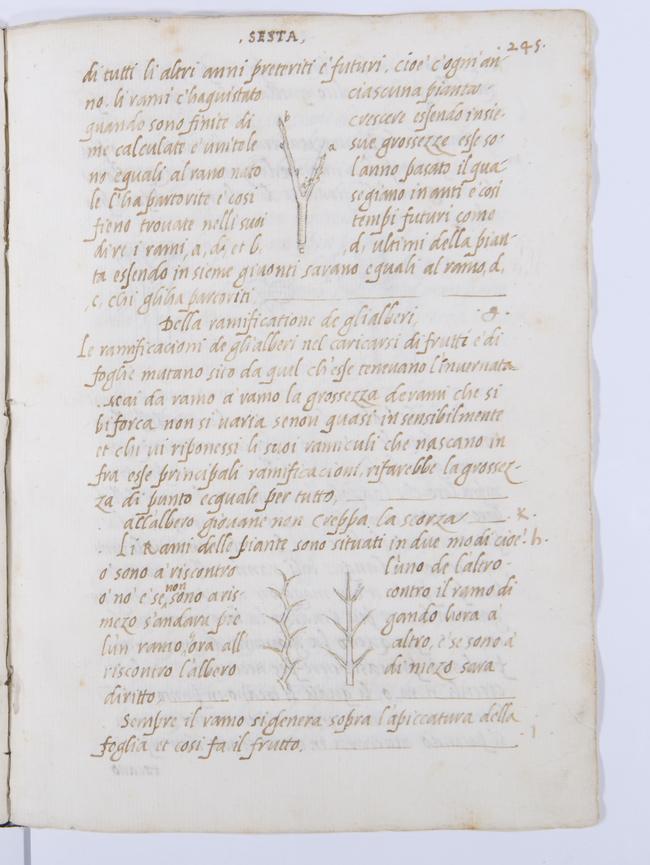 . SESTA,
. 245.
di tutti li altri anni preteriti e futuri, cioe' c'ogni an-
no. li rami c'haquistato ciascuna pianta
quando sono finite di crescere essendo insie-
me calculate e' unitole sue grossezze esse so-
no equali al ramo nato l'anno pasato il qua
le l'ha partorite e' cosi segiano in anti e' cosi
fieno trovate nelli suoi tempi futuri como
dire, i rami, a, d, et b, , d, ultimi della pian-
ta essendo insieme gionti sarano equali al ramo, d,
, c, chi gli ha partoriti
b
a
c
Della ramificatione de gli alberi, g.
Le ramificacioni de gli alberi nel caricarsi di frutti e' di
foglie mutano sito da quel ch'esse tenevano l'invernata
. . da ramo a' ramo la grossezza de rami che si
biforca non si varia senon quasi insensibilmente
et chi vi riponessi li suoi ramiculi che nascano in
fra esse principali ramificacioni, rifarebbe la grossez-
za di punto ecquale per tutto,
all'albero giovane non creppa la scorza K.
Li Rami delle piante sono situati in due modi cioe' . h.
o' sono a' riscontro l'uno de l'altro
o' no' e' se non sono a ris- contro il ramo di
mezo s'andara pie gando hora a'
l'un ramo, ora all altro, e' se sono a'
riscontro l'albero di mezo sara
diritto
Sempre il ramo si genera sopra l'apiccatura della
foglia et cosi fa il frutto. . l